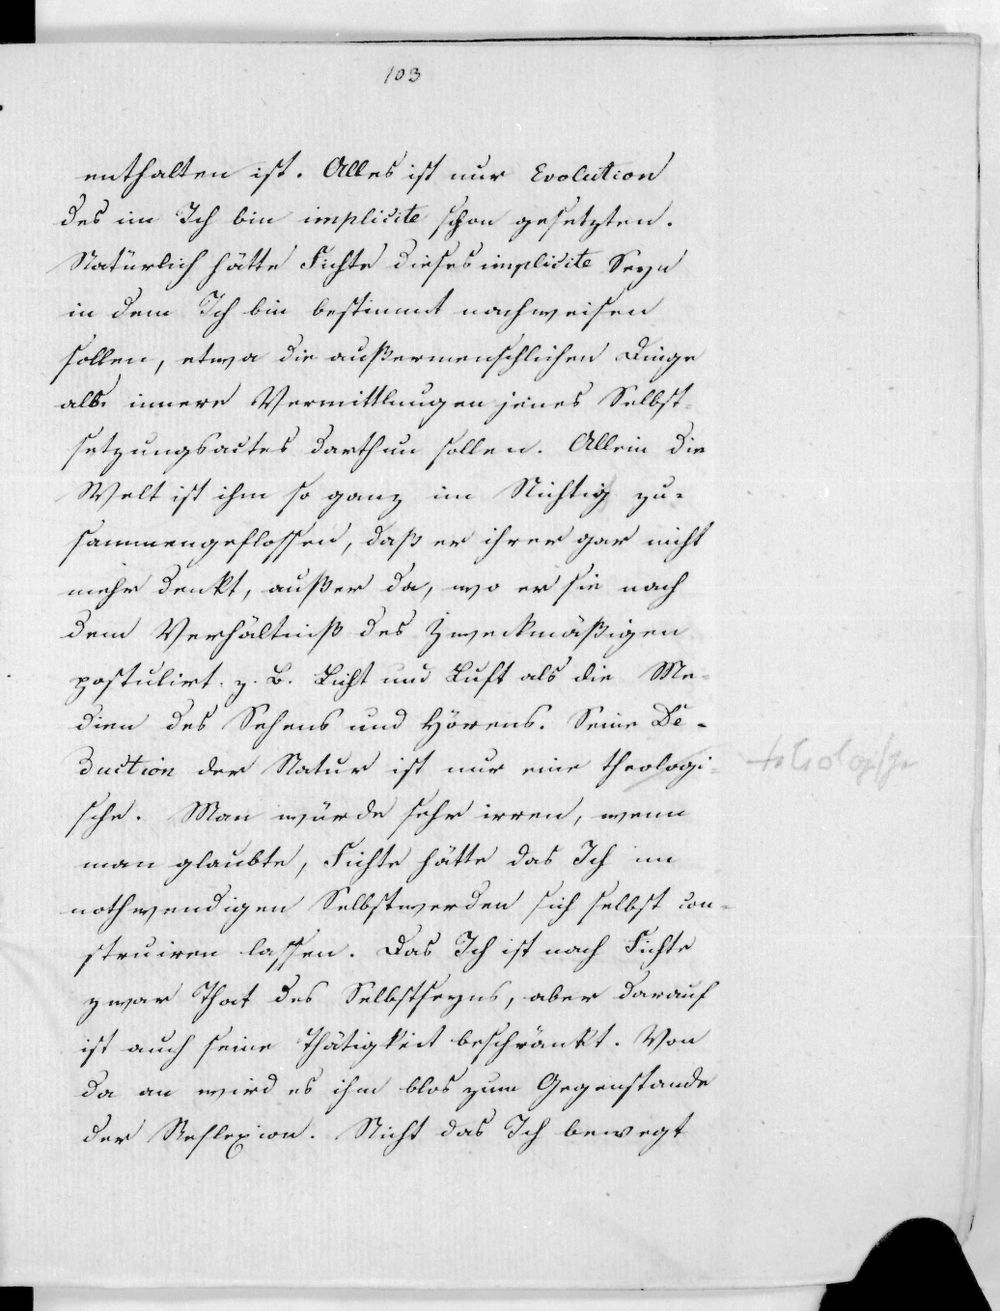 103
enthalten ist. Alles ist nur Evolution
des im Ich bin implicite schon gesetzten.
Natürlich hätte Fichte dieses implicite Seyn
in dem Ich bin bestimmt nachweisen
sollen, etwa die außermenschlichen Dinge
als innere Vermittlungen jenes Selbst-
setzungsactes darthun sollen. Allein die
Welt ist ihm so ganz im Nichtig zu-
sammengeflossen, daß er ihrer gar nicht
mehr denkt, außer da, wo er sie nach
dem Verhältniß des Zweckmäßigen
postulirt. z. B. Licht und Luft als die Me-
dien des Sehens und Hörens. Seine De-
duction der Natur ist nur eine theologi-
teleologische
sche. Man würde sehr irren, wenn
man glaubte, Fichte hätte das Ich im
nothwendigen Selbstwerden sich selbst con-
struiren lassen. Das Ich ist nach Fichte
zwar That des Selbstseyns, aber darauf
ist auch seine Thätigkeit beschränkt. Von
da an wird es ihm blos zum Gegenstande
der Reflexion. Nicht das Ich bewegt